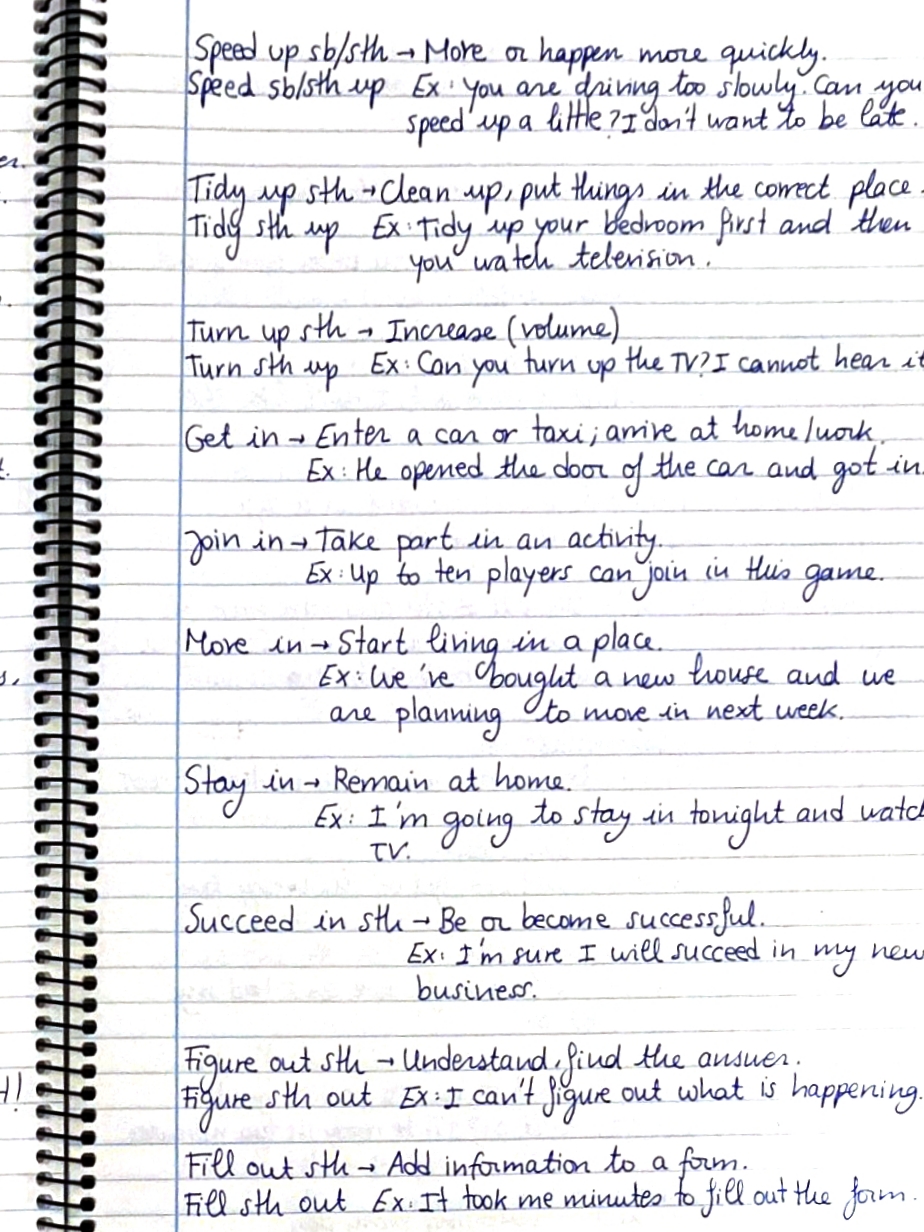 Speed up sb/sth → More or happen more quickly.
Speed sb/sth up Ex: You are driving too slowly. Can you
speed up a little? I don't want to be late.
Tidy up sth → Clean up, put things in the correct place.
Tidy sth up Ex: Tidy up your bedroom first and then
you watch television.
Turn up sth → Increase (volume)
Turn sth up Ex: Can you turn up the TV? I cannot hear it
Get in → Enter a car or taxi; arrive at home/work.
Ex: He opened the door of the car and got in.
Join in → Take part in an activity.
Ex: Up to ten players can join in this game.
Move in → Start living in a place.
Ex: We've bought a new house and we
are planning to move in next week.
Stay in → Remain at home.
Ex: I'm going to stay in tonight and watch
TV.
Succeed in sth → Be or become successful.
Ex: I'm sure I will succeed in my new
business.
Figure out sth → Understand, find the answer.
Figure sth out Ex: I can't figure out what is happening.
Fill out sth → Add information to a form.
Fill sth out Ex: It took me minutes to fill out the form.